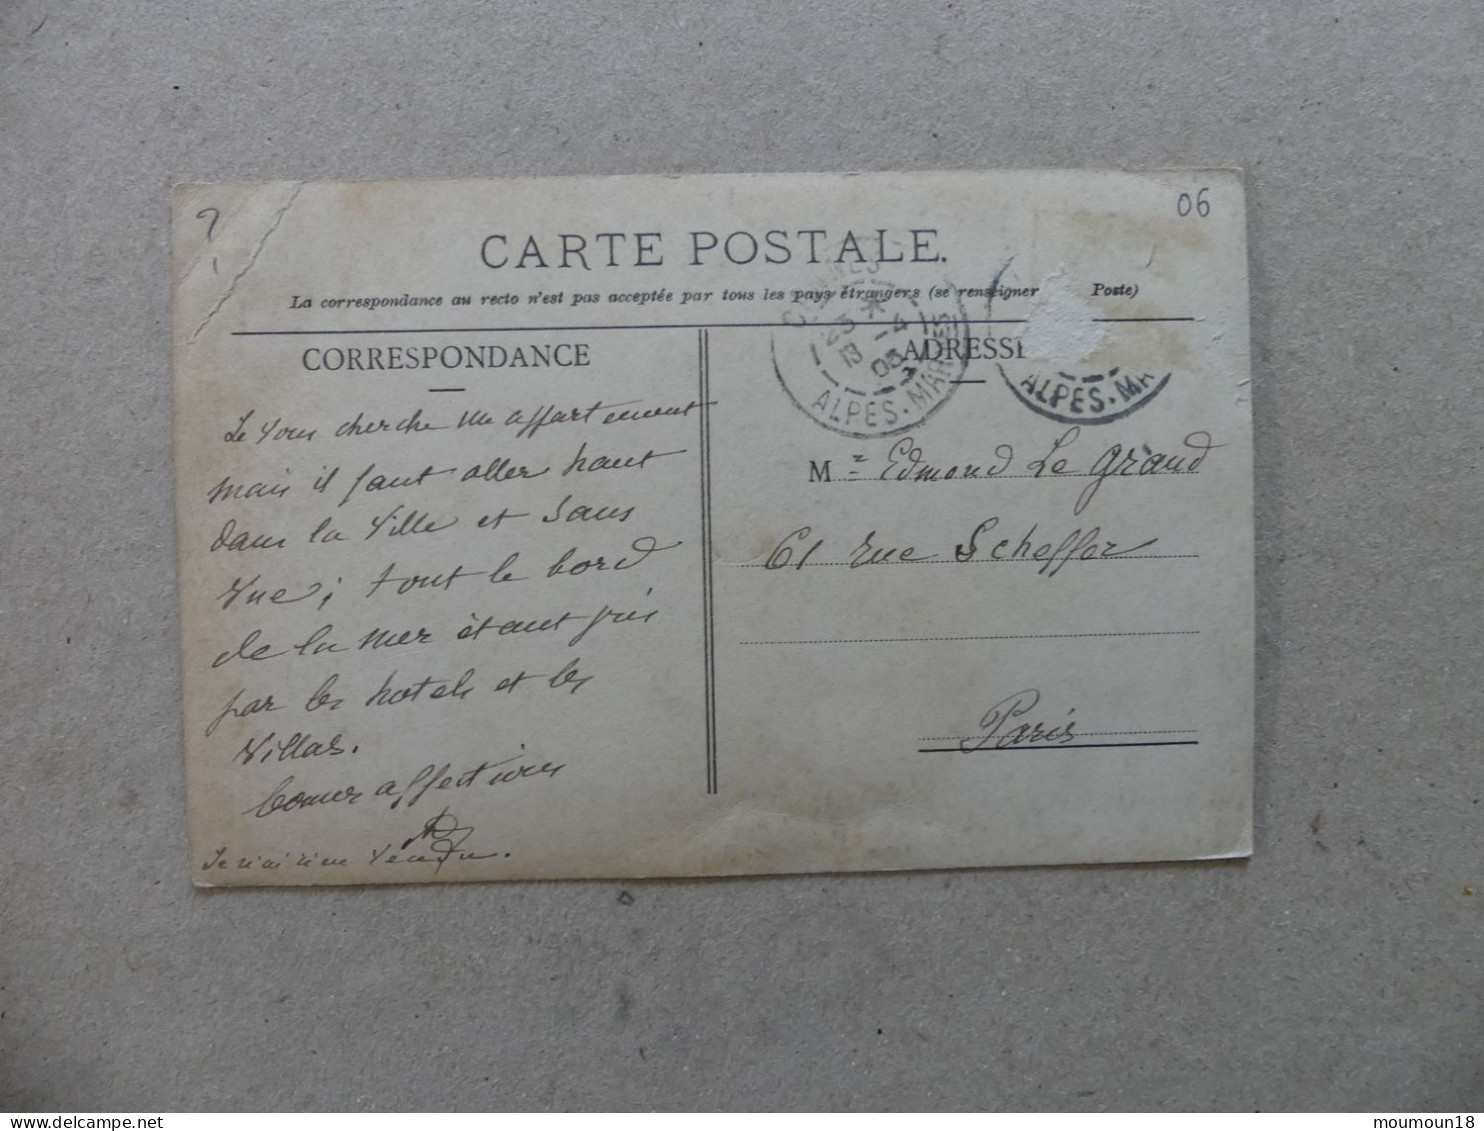 ?
06
CARTE POSTALE.
La correspondance au recto n'est pas acceptée par tous les pays étrangers (se renseigner Poste)
CORRESPONDANCE
ADRESSE
Je vous cherche un appartement
mais il faut aller haut
dans la Ville et sans
vue; tout le bord
de la mer étant pris
par les hotels et les
Villas.
bonnes affections
Je n'ai rien vendu.
CANNES
23 * 13 -4 05
ALPES-MARmes
ALPES-MA
Mr Edmond Le Grand
61 rue Scheffer
Paris
www.delcampe.net
moumoun18